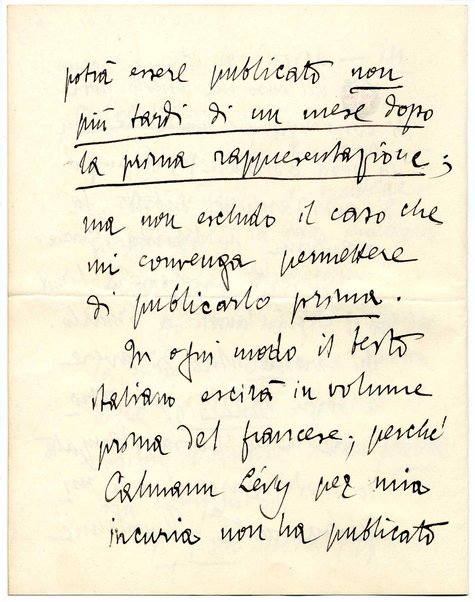 potrà essere publicato non
più tardi di un mese dopo
la prima rappresentazione;
ma non escludo il caso che
mi convenga permettere
di publicarlo prima.
In ogni modo il testo
italiano escirà in volume
prima del francese; perché
Calmann Lévy per mia
incuria non ha publicato